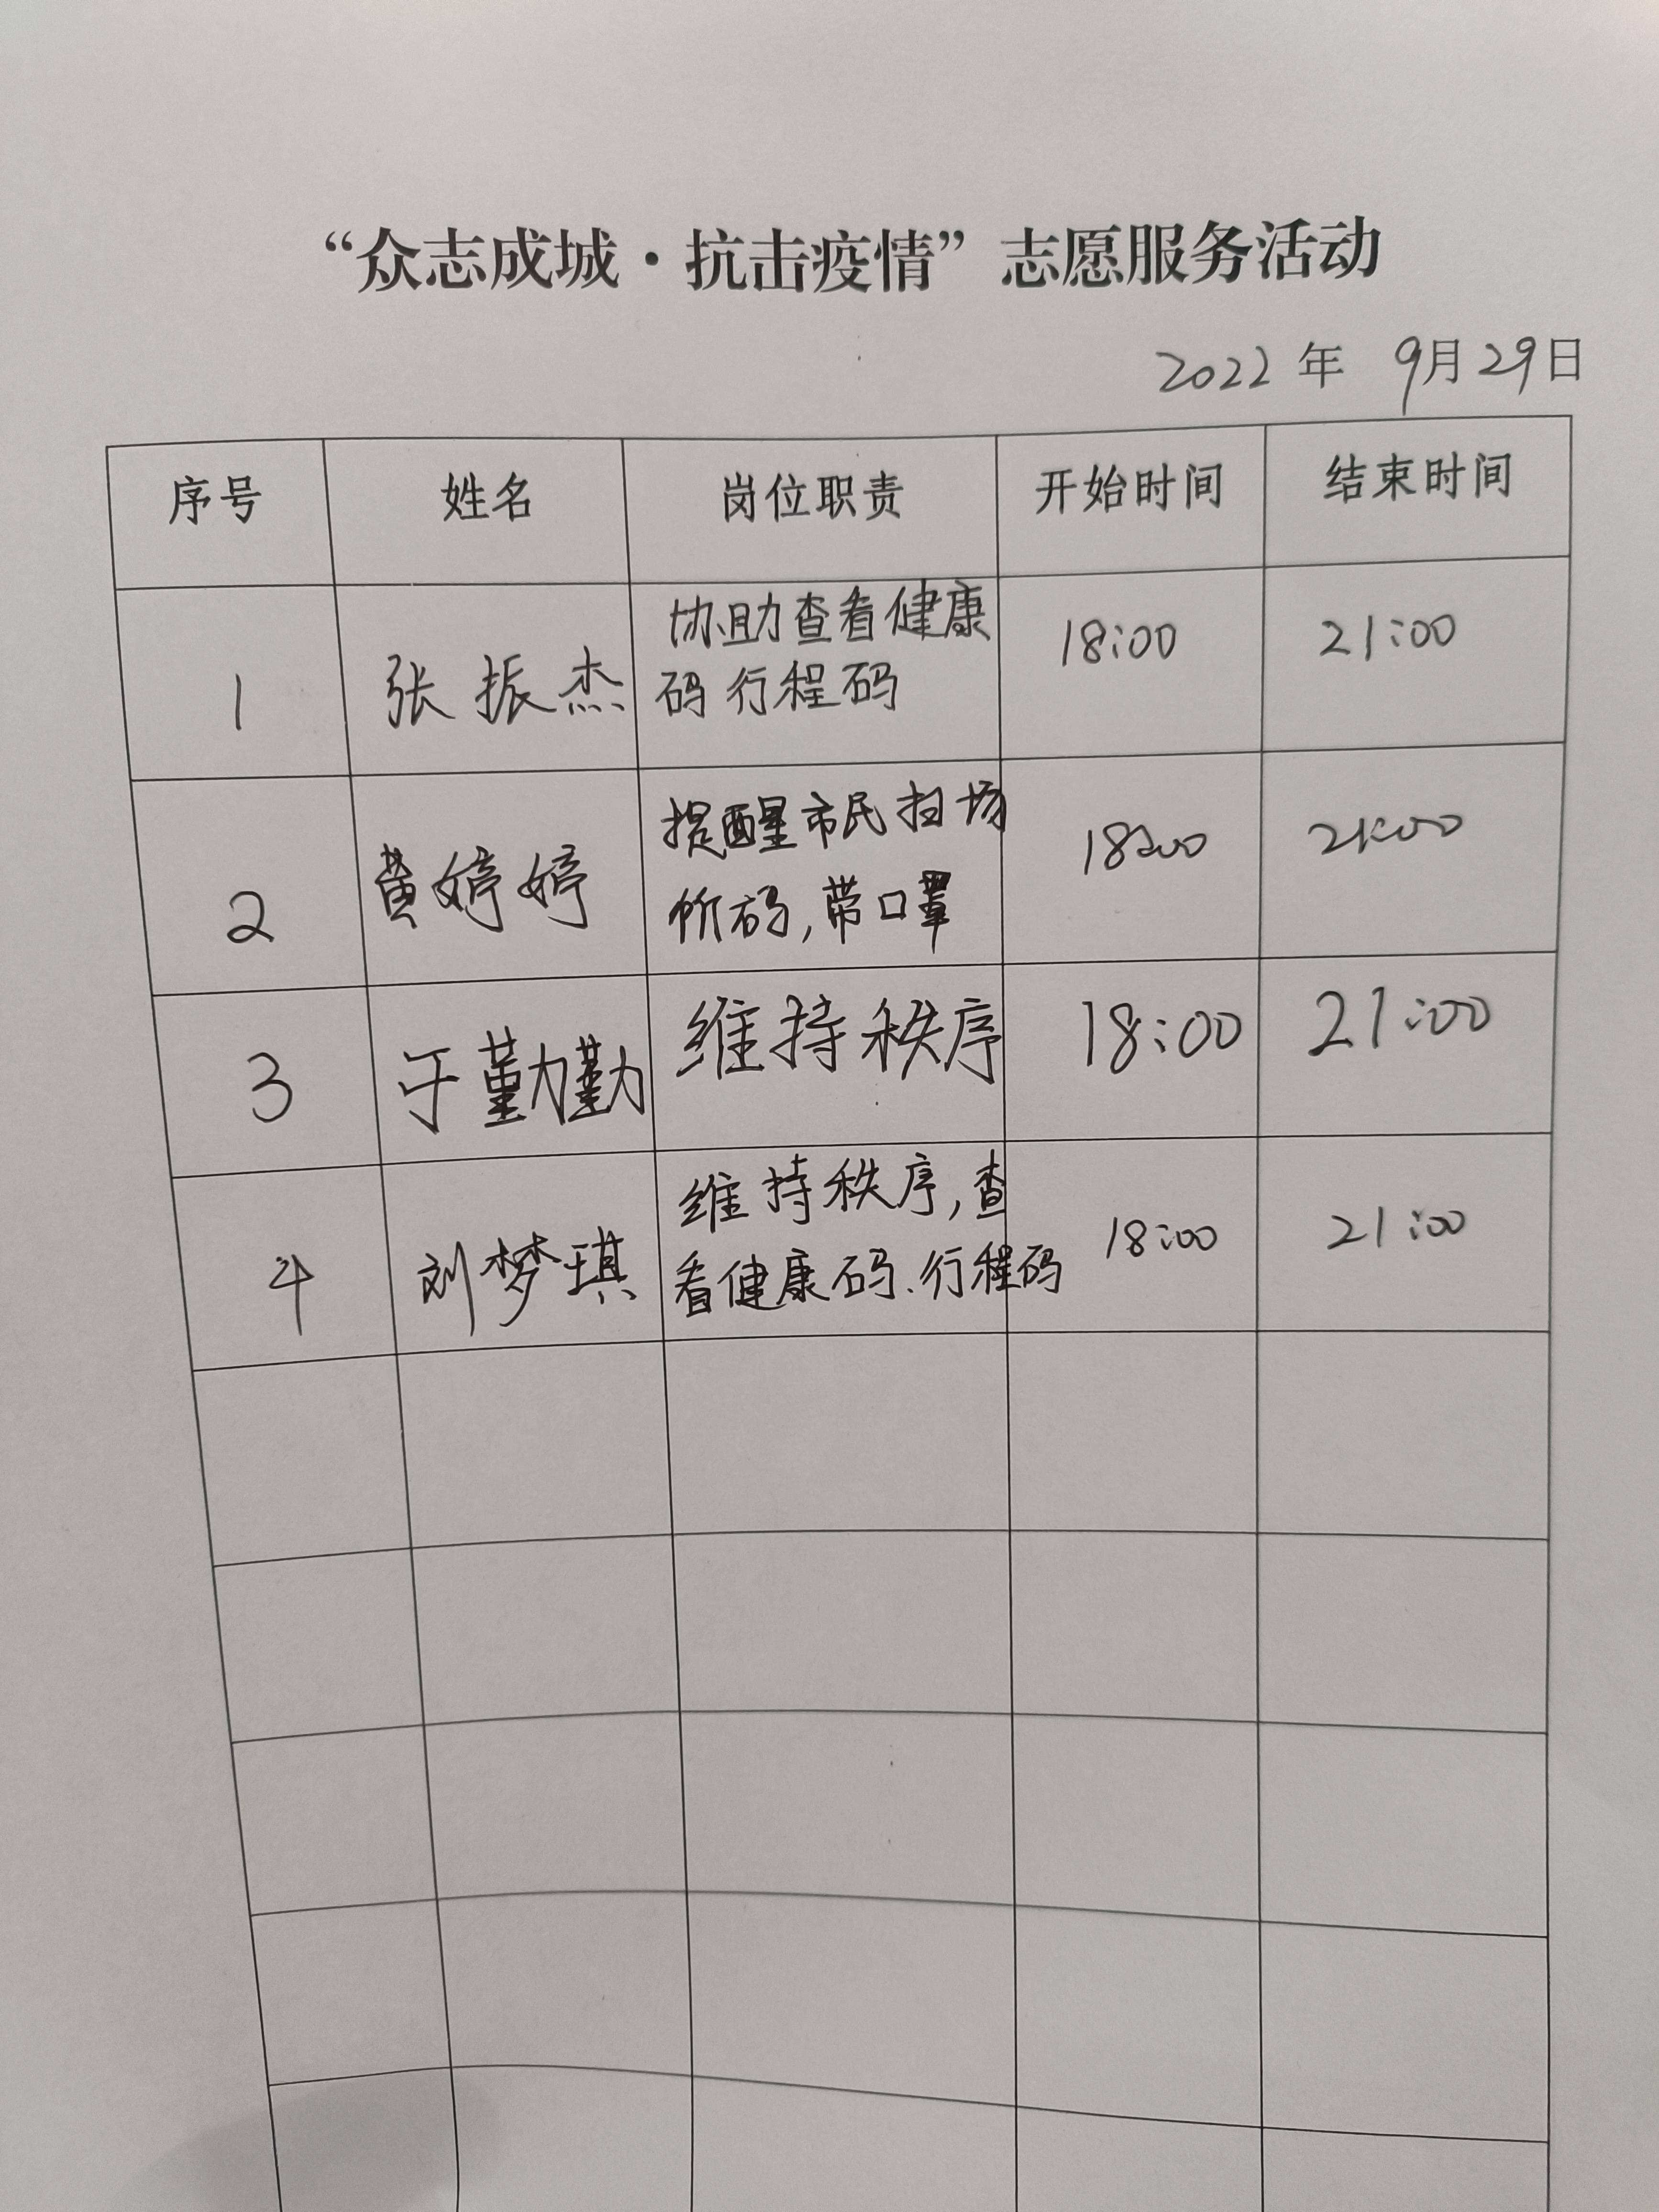 “众志成城·抗击疫情”志愿服务活动
2022年 9月29日
序号 姓名 岗位职责 开始时间 结束时间
1 张振杰 协助查看健康 18:00 21:00
码行程码
2 黄婷婷 提醒市民扫场 18:00 21:00
所码,带口罩
3 于勤勤 维持秩序 18:00 21:00
4 刘梦琪 维持秩序,查 18:00 21:00
看健康码、行程码